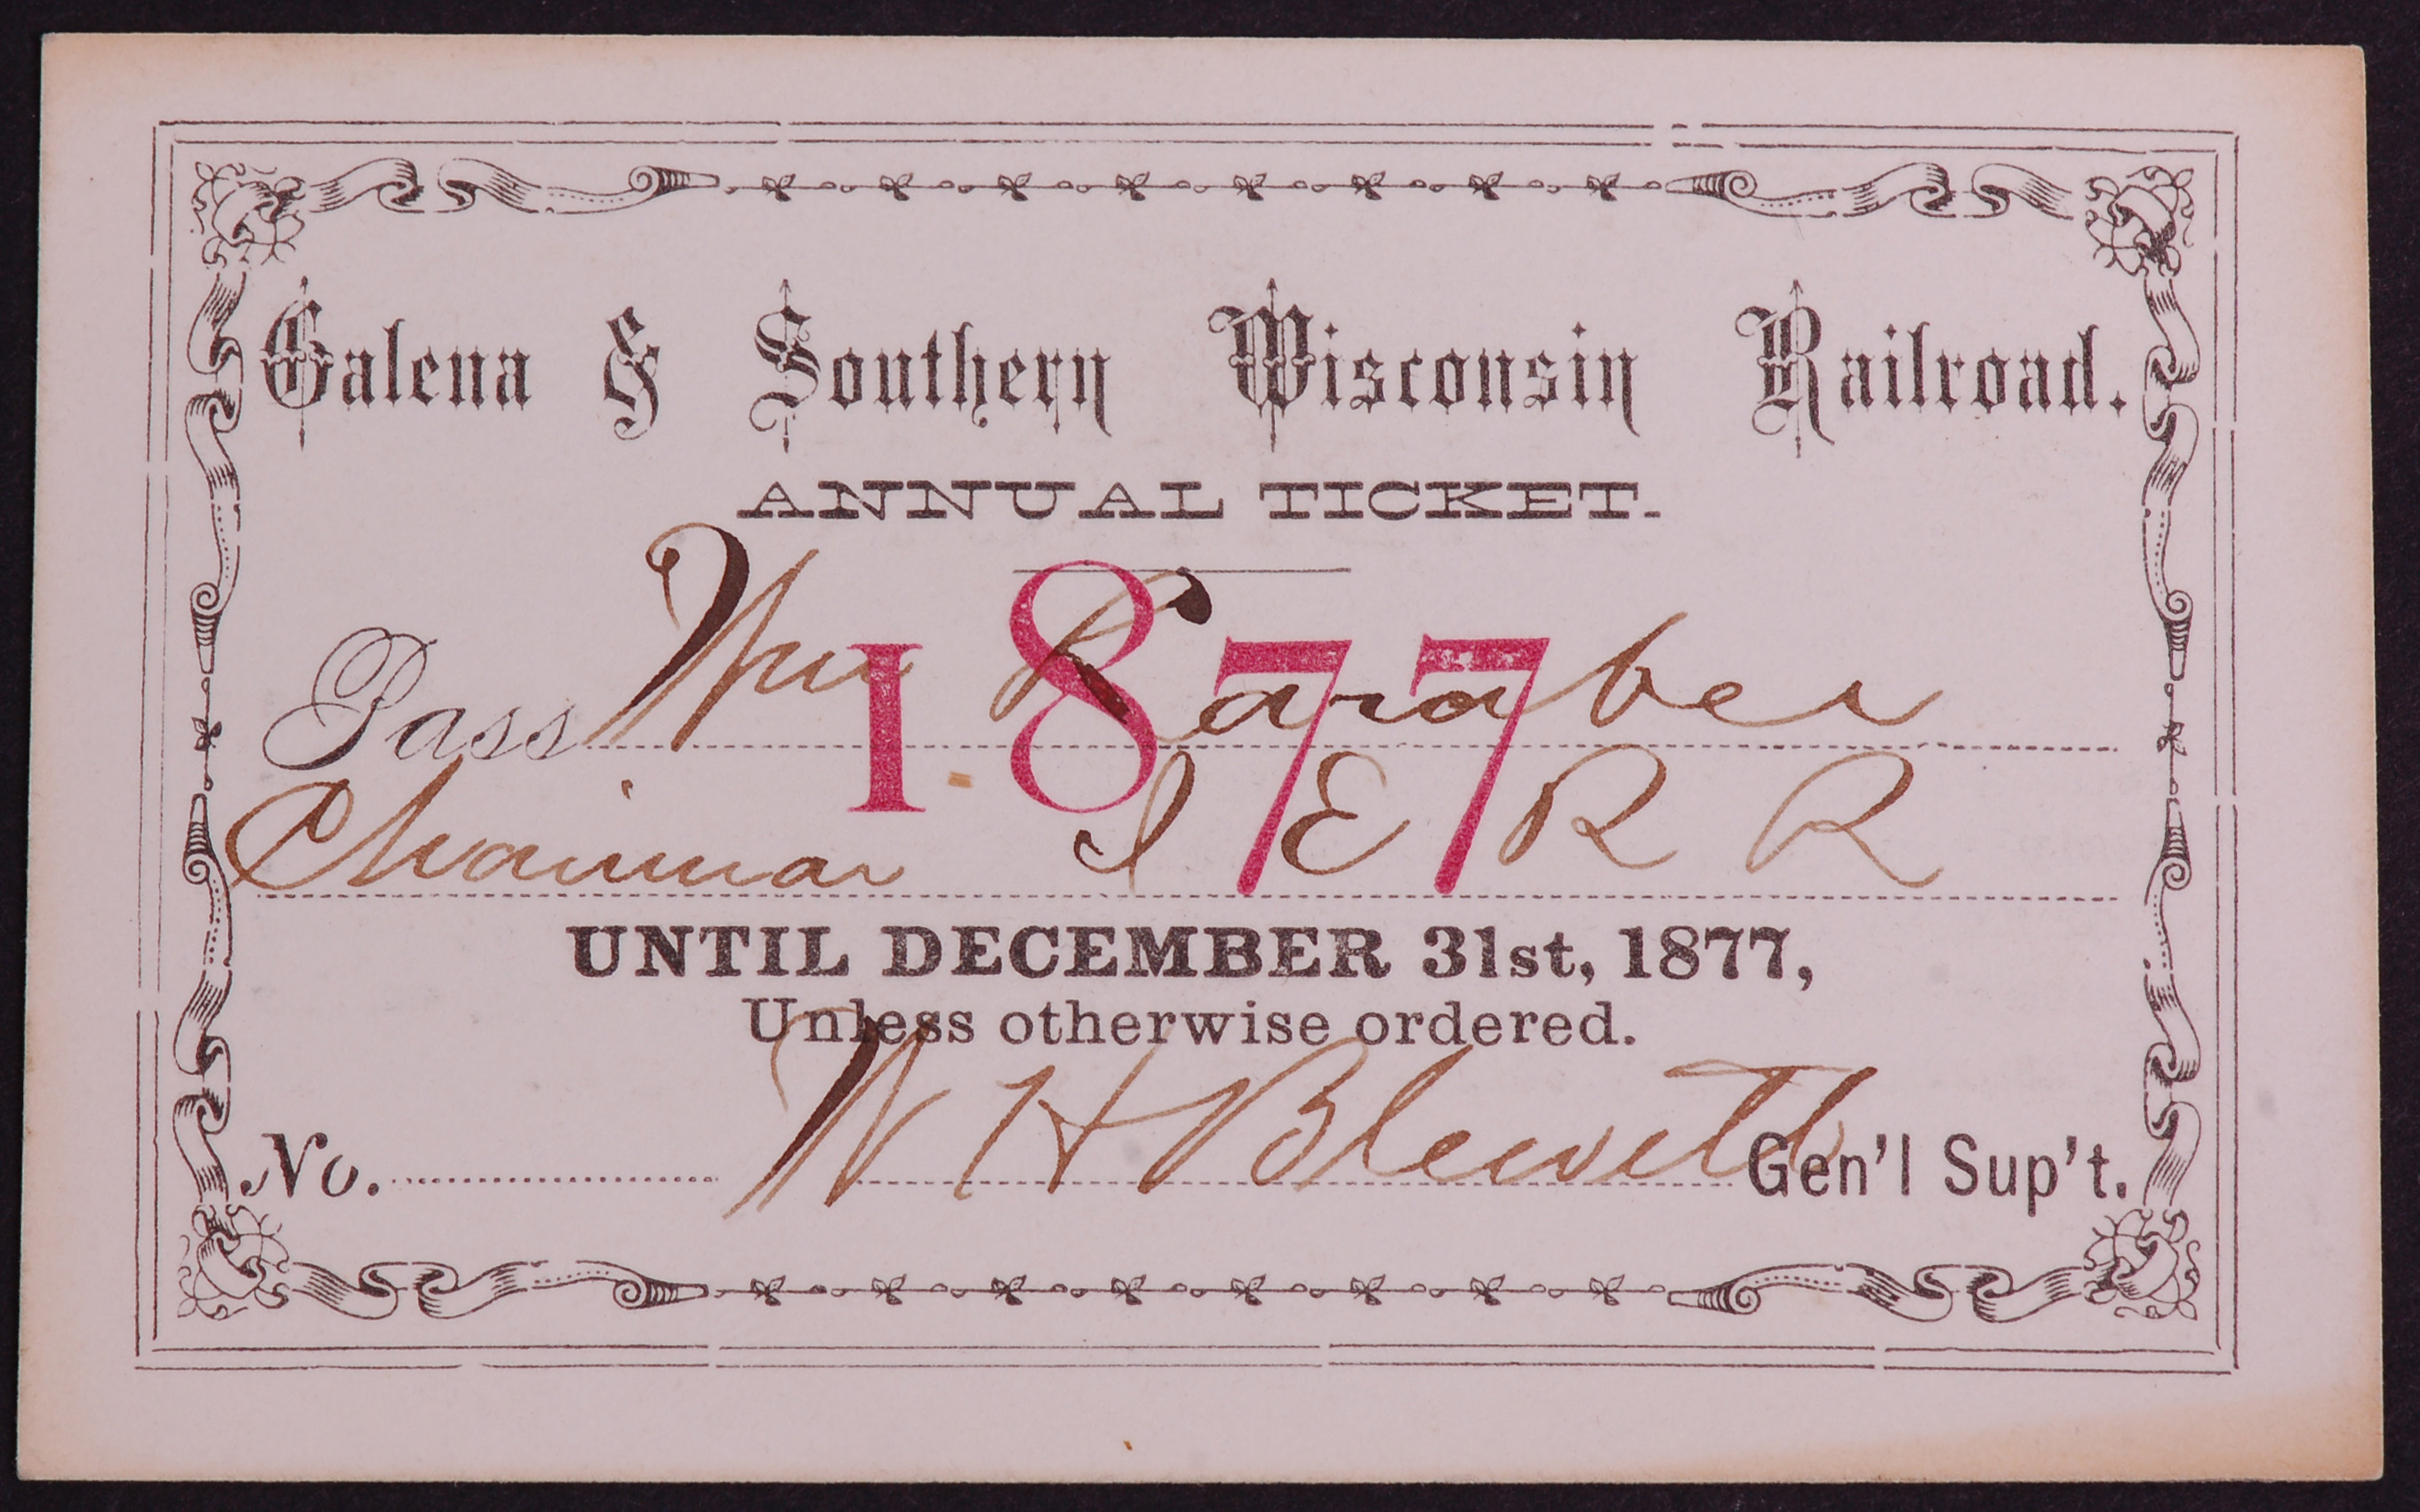 Galena & Southern Wisconsin Railroad.
ANNUAL TICKET.
1877
Pass Wm Karaber
Chairman I E R R
UNTIL DECEMBER 31st, 1877,
Unless otherwise ordered.
No. W H Blewett Gen'l Sup't.